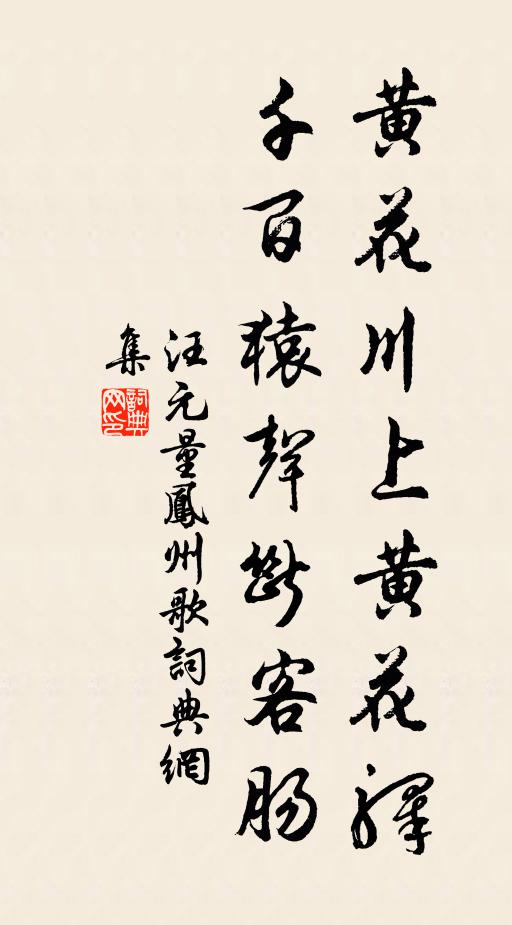 黃花川上黃花驛
千百猿聲斷客腸
汪元量鳳州歌詞典網
集
詞典網印